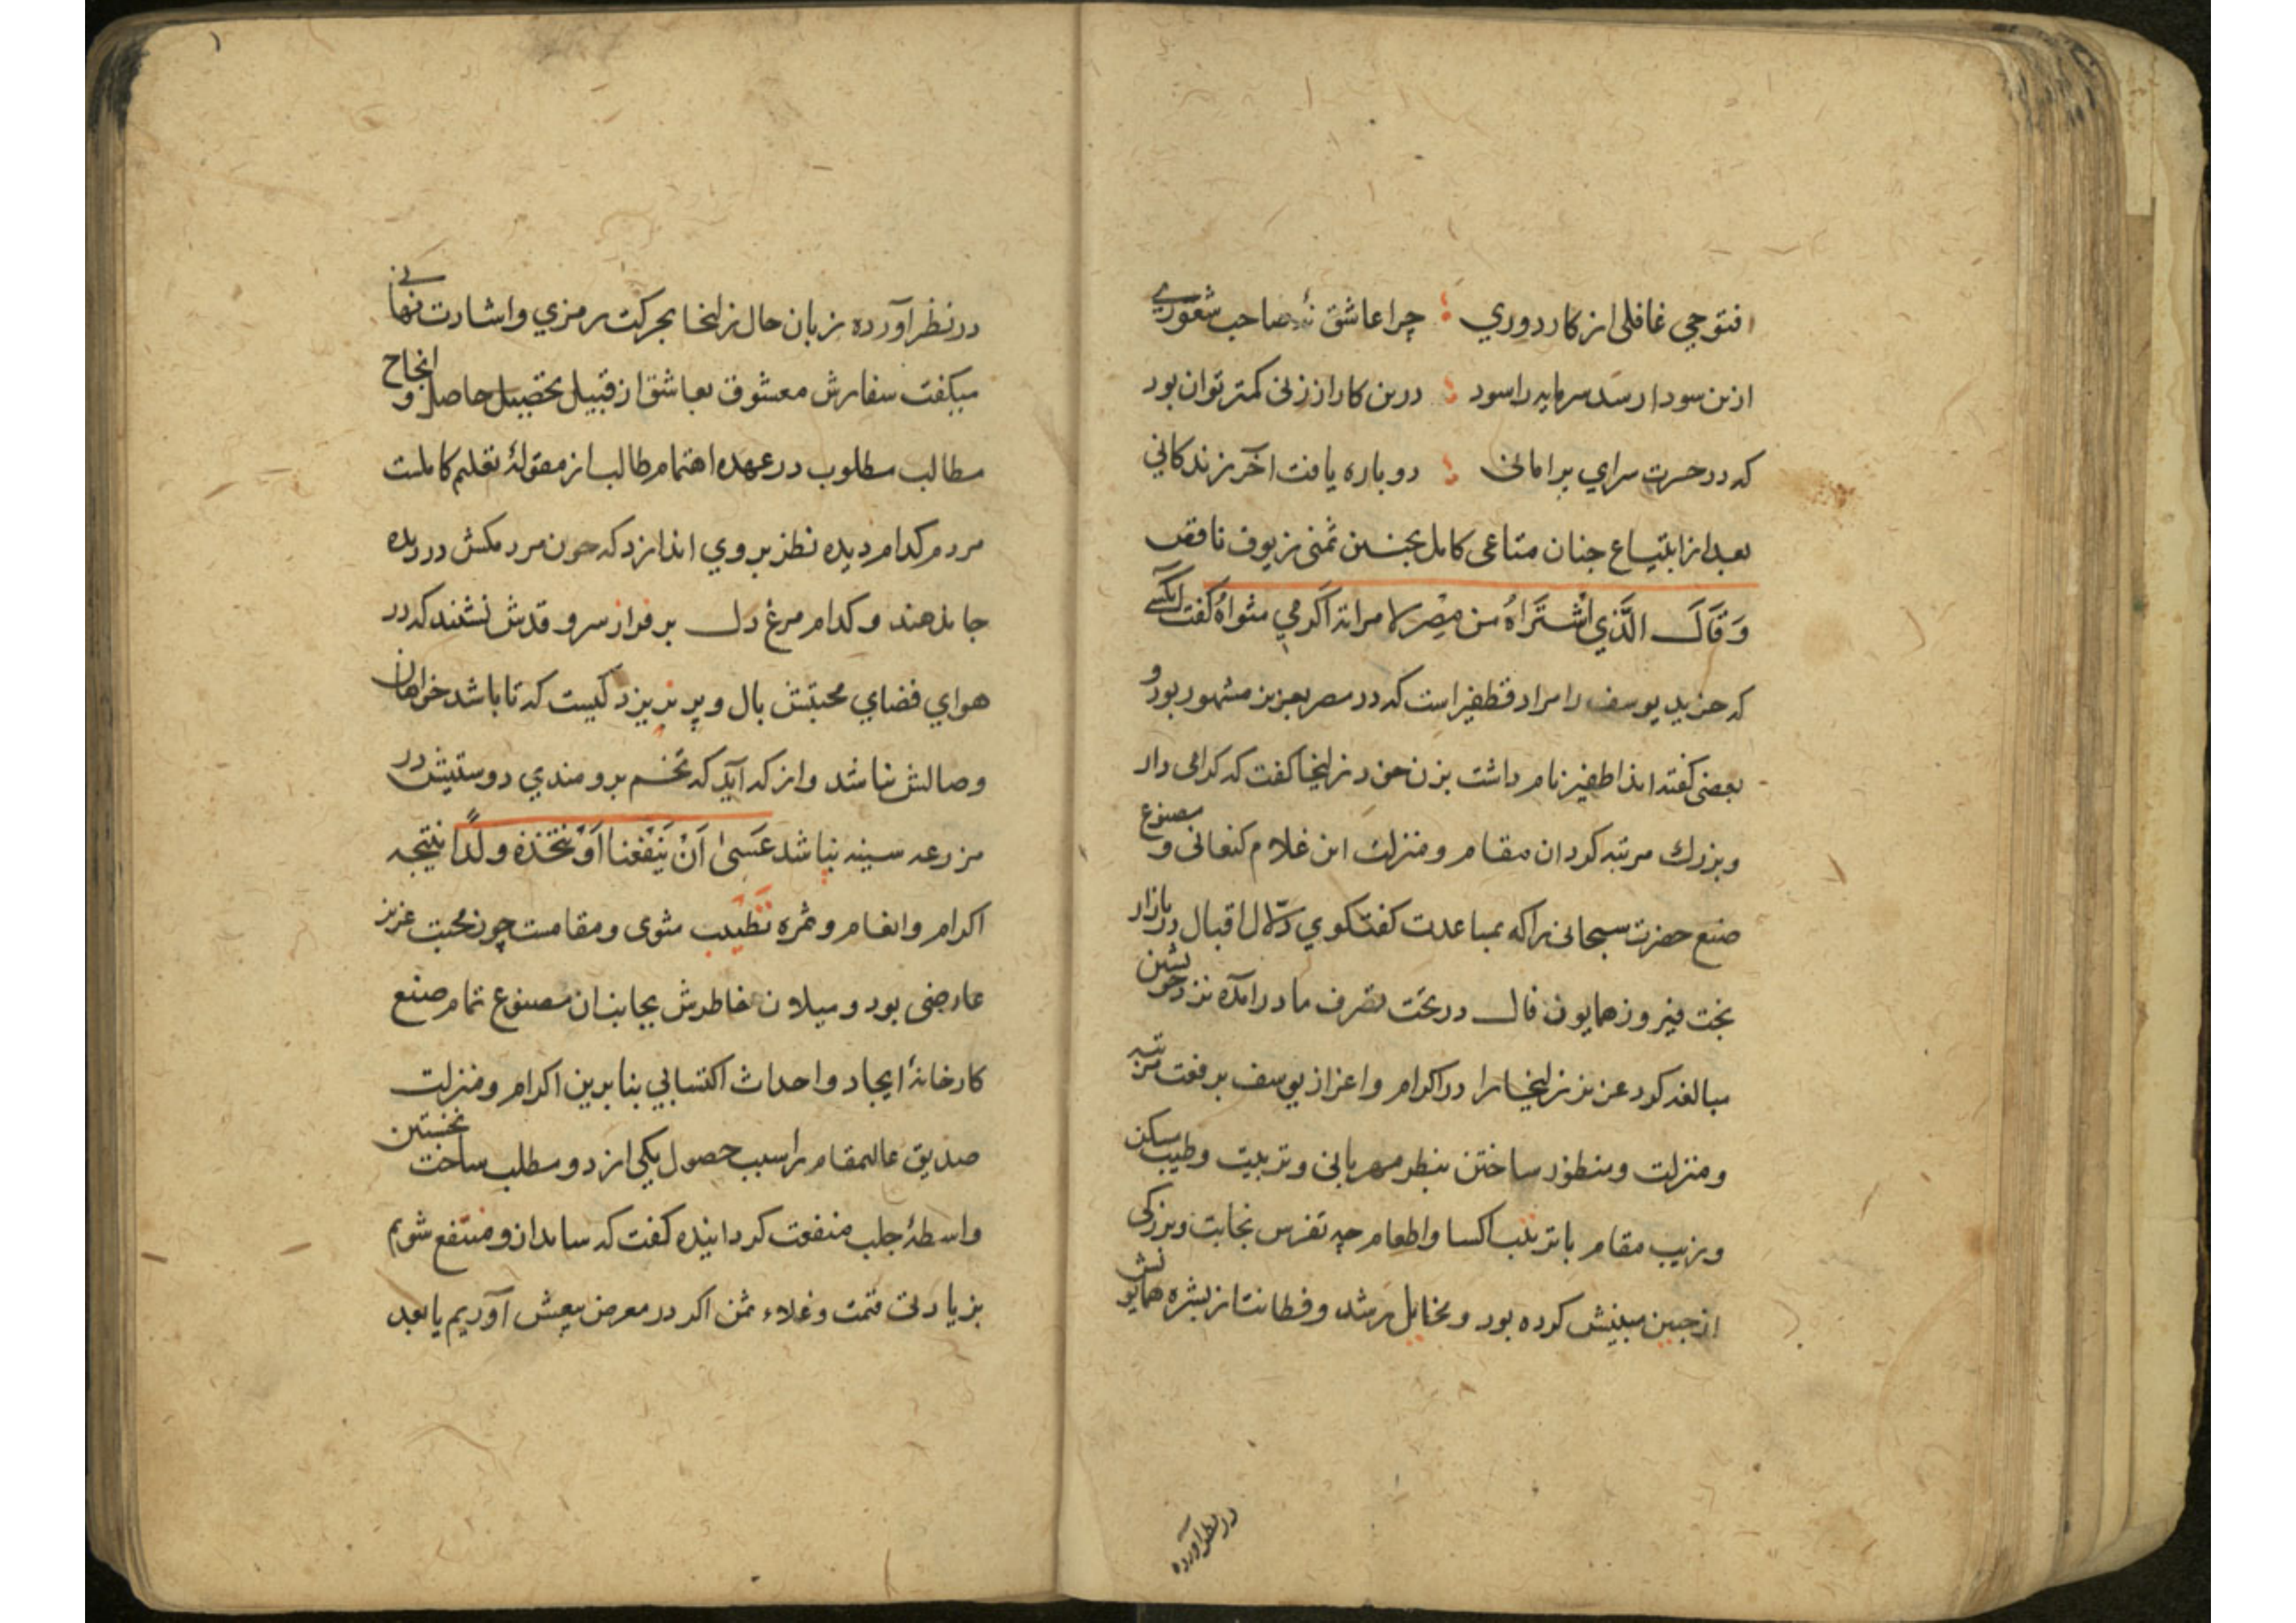 افتوحی غافلی از کار دوری چرا عاشق نهٔ صاحب شعوری
ازین سودا رسد سرمایه را سود درین کار از زنی کمتر توان بود
که در حسرت سرای پر امانی دوباره یافت آخر زندکانی
بعد از ابتیاع چنان متاعی کامل بچنین ثمنی زیوف ناقص
وَقَالَ الَّذِي اشْتَرَاهُ مِن مِصْرَ لامراته اَکرمی مثواهُ کفت آنکسی
که خرید یوسف را مراد قطفیر است که در مصر بعزیز مشهور بود و
بعضی کفته اند اطفیر نام داشت بزن خود زلیخا کفت که کرامی دار
و بزرك مرتبه کردان مقام و منزلت این غلام کنعانی و مصنوع
صنع حضرت سبحانی را که بمساعدت کفتکوی دلّال اقبال در بازار
بخت فیروز همایون فال در تحت تصرف ما درآمده نزد خویشتن
مبالغه کرد عزیز زلیخا را در اکرام و اعزاز یوسف برفعت مرتبه
و منزلت و منظور ساختن بنظر مهربانی و تربیت و طیب مسکن
و زیب مقام با ترتیب اکسا و اطعام چه تفرس نجابت و بزرکی
از جبین مبینش کرده بود و مخایل رشد و فطانت از بشره همایونش
در نظر آورده
در نظر آورده زبان حال زلیخا بحرکت رمزی و اشارت نهانی
میکفت سفارش معشوق بعاشق از قبیل تحصیل حاصل و انجاح
مطالب مطلوب در عهده اهتمام طالب از مقولهٔ تعلیم کاملست
مردم کدام دیده نظر بروی اندازد که چون مردمکش در دیده
جا ندهند و کدام مرغ دل بر فراز سرو قدش نشیند که در
هوای فضای محبتش بال و پر نریزد کیست که تا باشد خواهان
وصالش نباشد و از که آید که تخم برومندی دوستیش در
مزرعه سینه نپاشد عَسَیٰ اَنْ یَنْفَعَنا اَوْ نتّخذه ولدًا نتیجه
اکرام و انعام و ثمره تطیب مثوی و مقامت چون محبت عزیز
عارضی بود و میلان خاطرش بجانب ان مصنوع تمام صنع
کارخانهٔ ایجاد و احداث اکتسابی بنابرین اکرام و منزلت
صدیق عالیمقام را سبب حصول یکی از دو مطلب ساخت نخستین
واسطهٔ جلب منفعت کردانیده کفت که شاید از و منتفع شویم
بزیادتی قیمت و غلاء ثمن اکر در معرض بیعش آوریم یا بعد